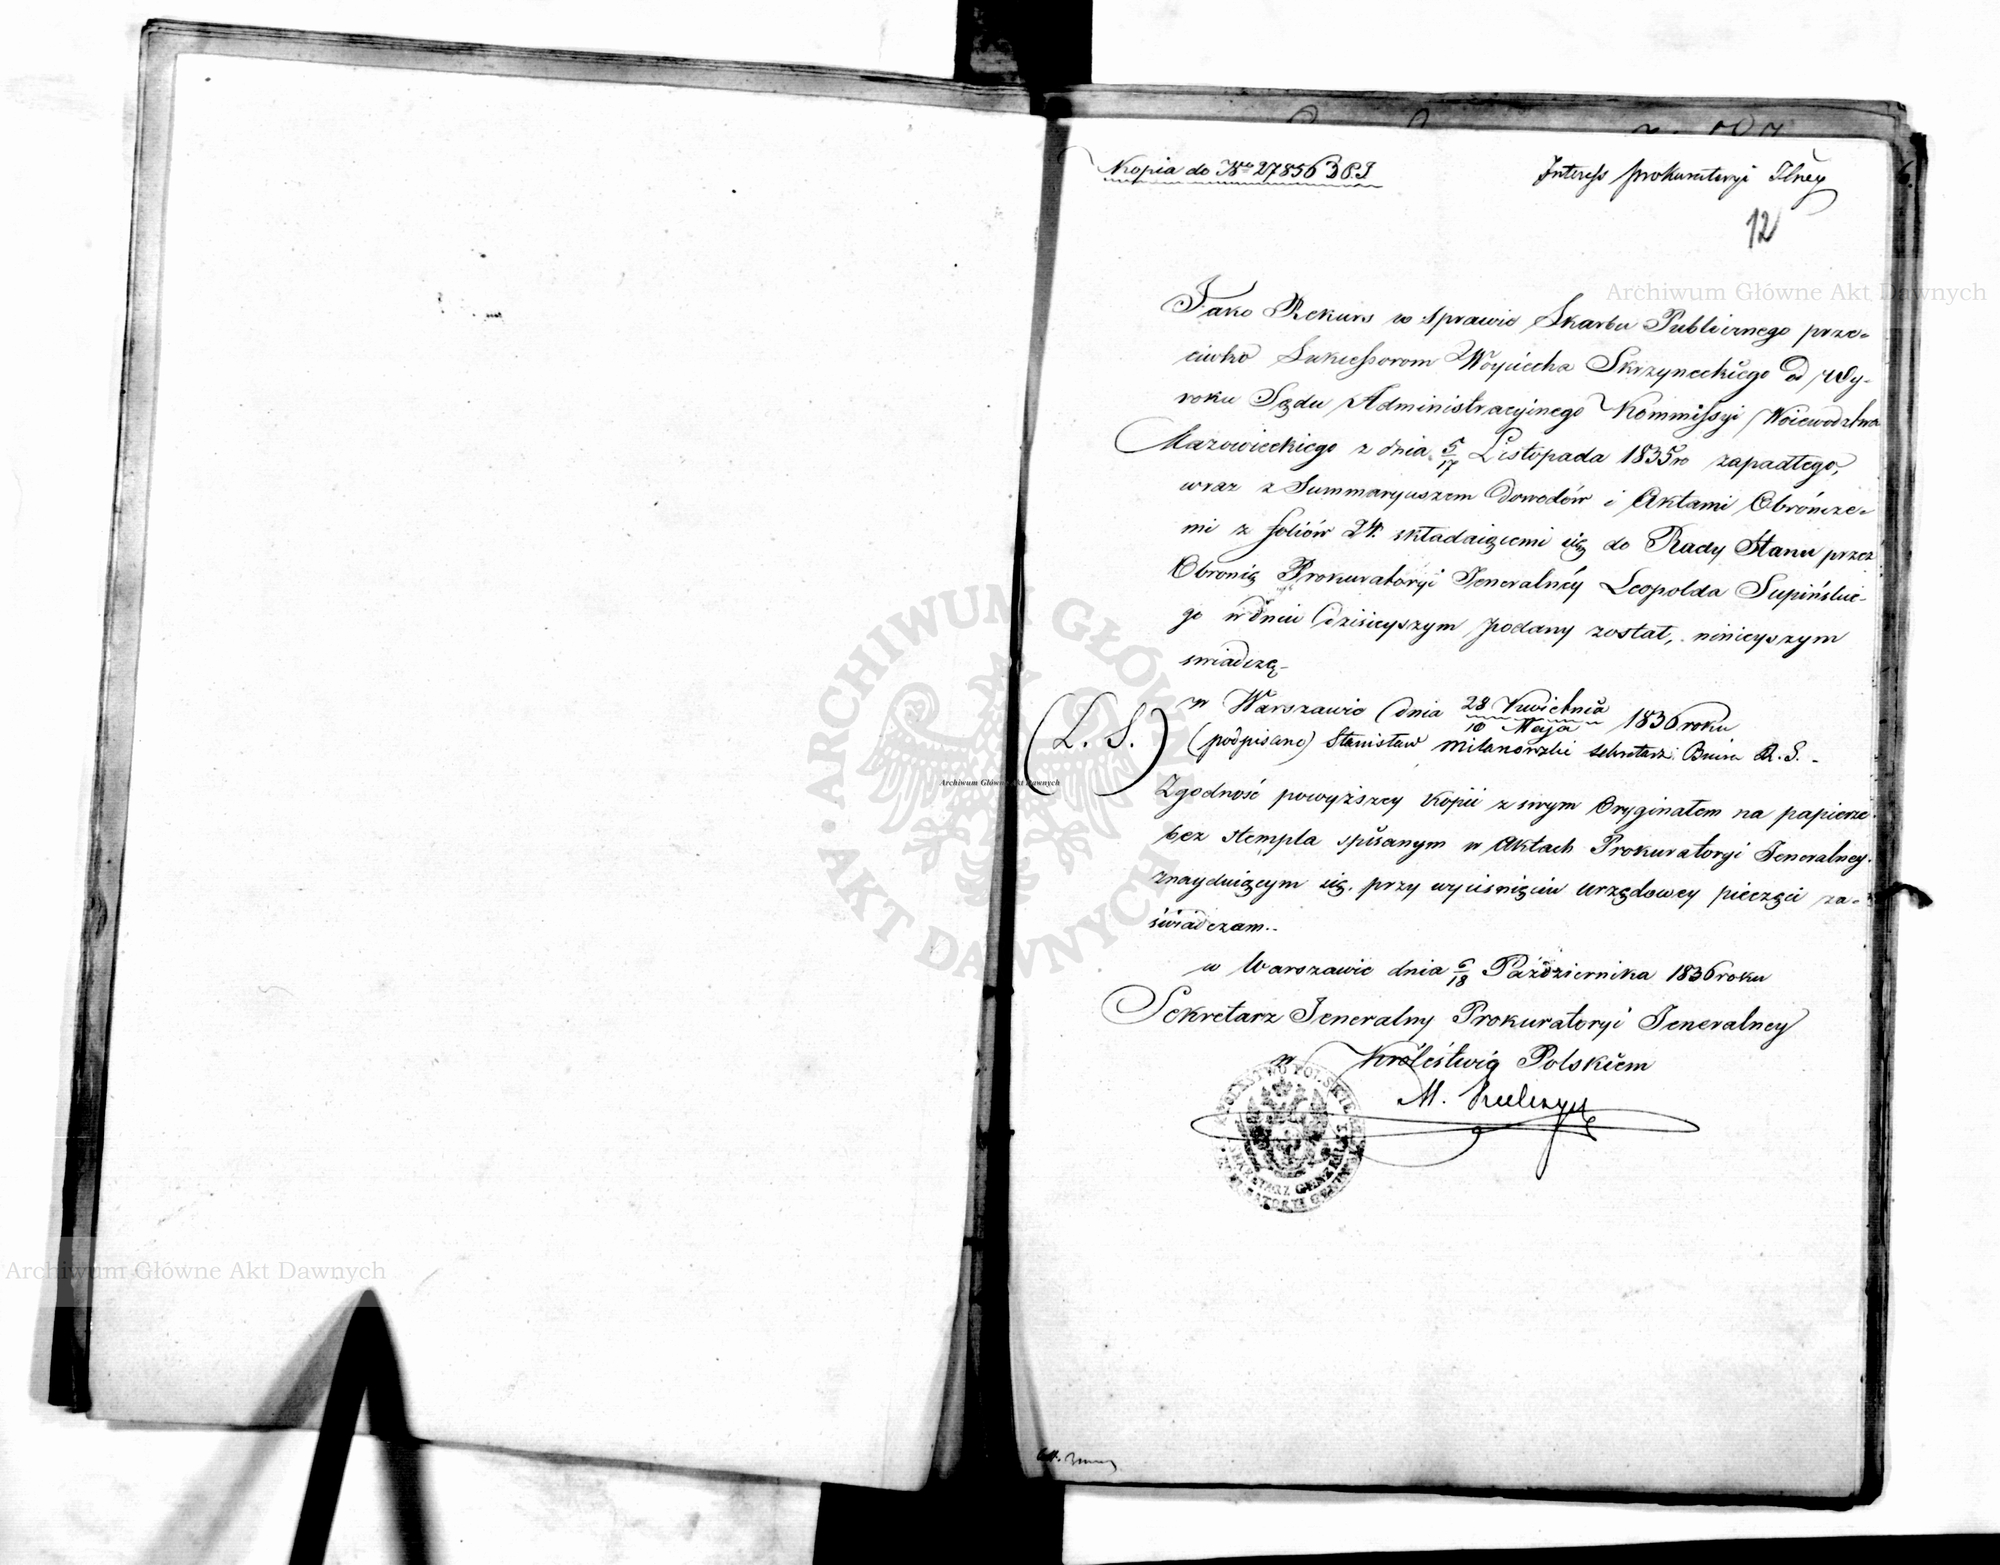 Kopia do Nro 27856
Interess prokuratoryi Jlney
6.
12
Jako Rekurs w sprawie Skarbu Publicznego prze-
ciwko Sukcessorom Woyciecha Skrzyneckiego od Wy-
roku Sądu Administracyinego Kommissyi Woiewodztwa
Mazowieckiego z dnia 5/17 Listopada 1835 ro zapadłego,
wraz z Summaryuszem Dowodów i Aktami Obrończe-
mi z foliów 24 składaiącemi się do Rady Stanu przez
Obrońcę Prokuratoryi Jeneralnéy Leopolda Supińskie-
go w dniu dzisieyszym podany został, ninieyszym
swiadczę
w Warszawie dnia 28 Kwietnia / 10 Maja 1836 roku
(L. S.) (podpisano) Stanisław Milanowski Sekretarz Biura R. S.
Zgodność powyższey kopii z swym Oryginałem na papierze
bez stempla spisanym w Aktach Prokuratoryi Jeneralney
znayduiącym się, przy wyciśnięciu urzędowey pieczęci za-
świadczam.
w Warszawie dnia 6/18 Października 1836 roku
Sekretarz Jeneralny Prokuratoryi Jeneralney
w Królestwie Polskiem
M.
Archiwum Główne Akt Dawnych
ARCHIWUM GŁÓWNE AKT DAWNYCH
Archiwum Główne Akt Dawnych
Archiwum Główne Akt Dawnych